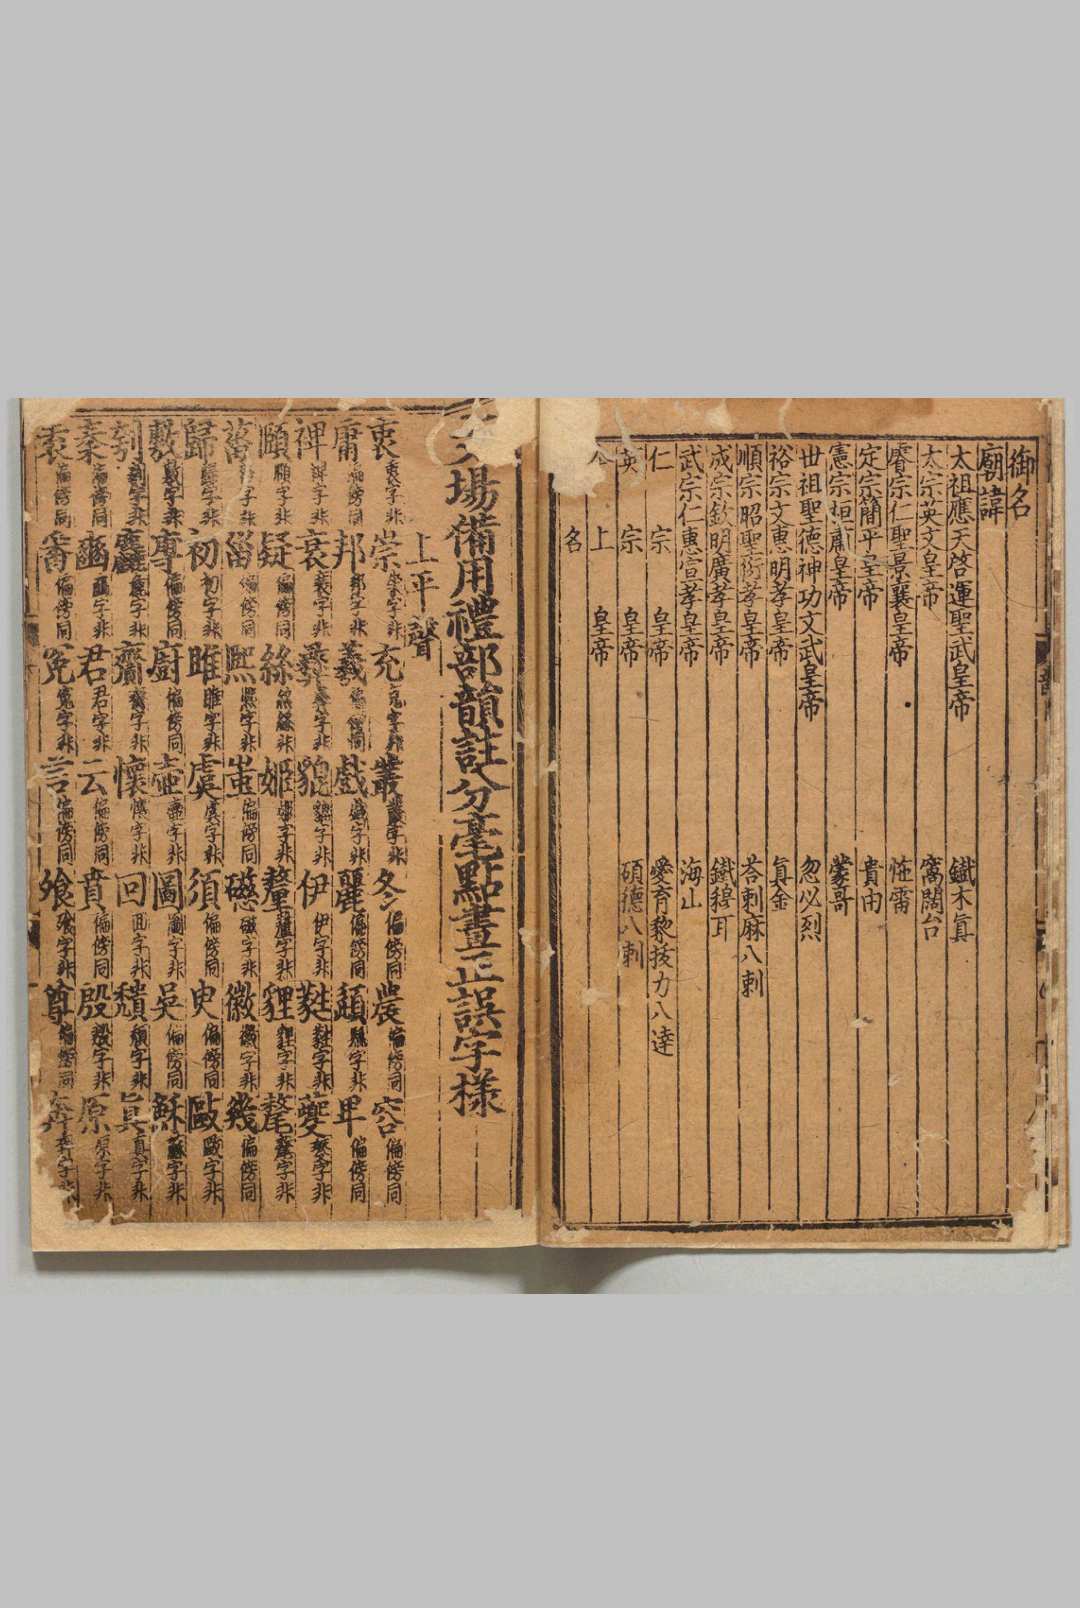 御名
廟諱
太祖應天啓運聖武皇帝 鐵木真
太宗英文皇帝 窩闊台
睿宗仁聖景襄皇帝
定宗簡平皇帝 貴由
憲宗桓肅皇帝 蒙哥
世祖聖德神功文武皇帝 忽必烈
裕宗文惠明孝皇帝 真金
順宗昭聖衍孝皇帝 荅剌麻八剌
成宗欽明廣孝皇帝 鐵穆耳
武宗仁惠宣孝皇帝 海山
仁宗皇帝 愛育黎拔力八達
英宗皇帝 碩德八剌
今上皇帝
名
文場備用禮部韻註分毫點畫正誤字樣
上平聲
衷 衷字非 崇 崇字非 充 充字非 叢 叢字非 冬 偏傍同 農 偏傍同 容 偏傍同
庸 偏傍同 邦 邦字非 羲 偏傍同 戲 戲字非 麗 偏傍同 卑 偏傍同
裨 裨字非 衰 衰字非 彝 彝字非 貌 貌字非 伊 伊字非 蕤 蕤字非 夔 夔字非
頤 頤字非 疑 偏傍同 絲 絲字非 姬 姬字非 釐 釐字非 貍 貍字非 氂 氂字非
菑 菑字非 淄 偏傍同 熙 熙字非 蚩 偏傍同 磁 磁字非 徽 徽字非 幾 偏傍同
歸 歸字非 初 初字非 雎 雎字非 虞 虞字非 須 偏傍同 臾 偏傍同 毆 毆字非
敷 敷字非 專 偏傍同 廚 偏傍同 壺 壺字非 圖 圖字非 吳 偏傍同 蘇 蘇字非
齎 齎字非 懷 懷字非 回 回字非 頹 頹字非 真 真字非
秦 偏傍同 君 君字非 云 偏傍同 賁 偏傍同 殷 殷字非 原 原字非
袁 偏傍同 番 偏傍同 冤 冤字非 言 偏傍同 飧 飧字非 尊 偏傍同 奔 奔字非